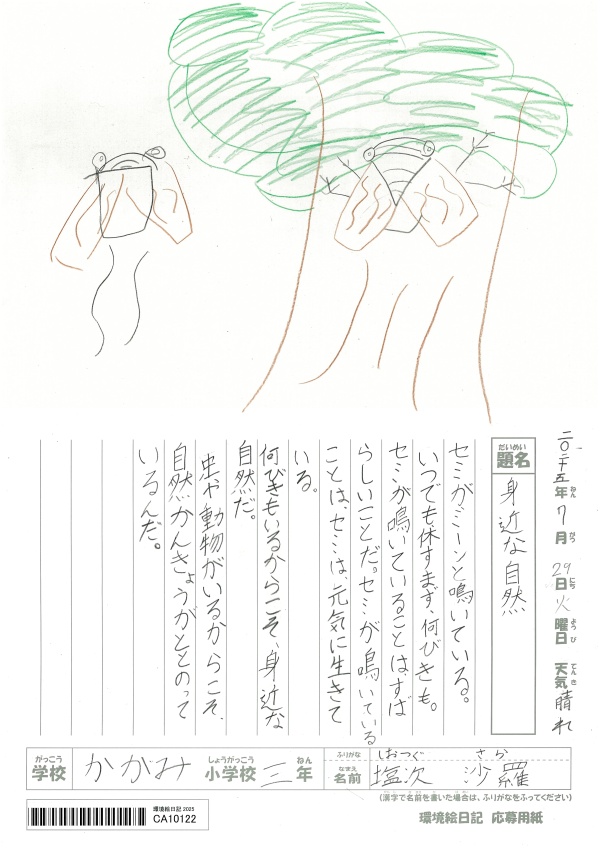 二〇二十五年ねん7月がつ29日にち火曜日ようび 天気てんき晴れ
題名だいめい 身近な自然
セミがミーンと鳴いている。
いつでも休すまず、何びきも。
セミが鳴いていることはすば
らしいことだ。セミが鳴いている
ことは、セミは、元気に生きて
いる。
何びきもいるからこそ、身近な
自然だ。
虫や動物がいるからこそ、
自然かんきょうがととのって
いるんだ。
学校がっこう かがみ 小学校しょうがっこう 三年ねん
ふりがな しおつぐ さら
名前なまえ 塩次 沙羅
(漢字で名前を書いた場合は、ふりがなをふってください)
環境絵日記 2025
CA10122
環境絵日記 応募用紙